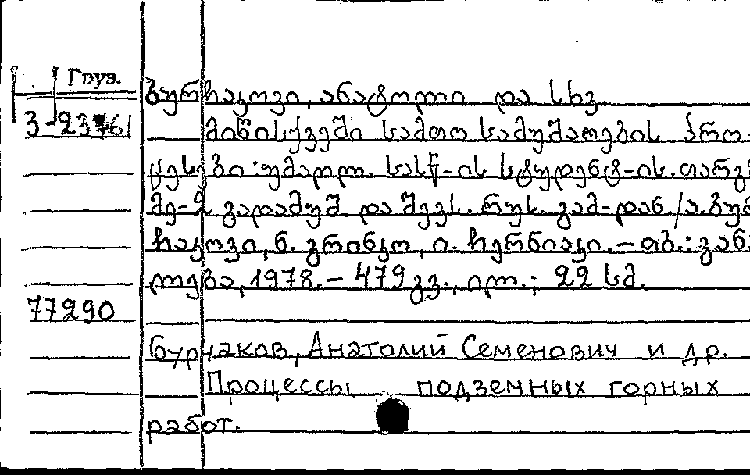 Груз.
ბურჩაკოვი, ანატოლი და სხვ.
3-23761
მიწისქვეშა სამთო სამუშაოების პრო-
ცესები: უმაღლ. სასწ-ის სტუდენტ-ის. თარგმ
მე-2 გადამუშ. და შევს. რუს. გამ-დან /ა. ბურ
ჩაკოვი, ნ. გრინკო, ი. ჩერნიაკი. – თბ.: განა
ლება, 1978. – 479 გვ., ილ.; 22 სმ.
77290
Бурчаков, Анатолий Семенович и др.
Процессы подземных горных
работ.